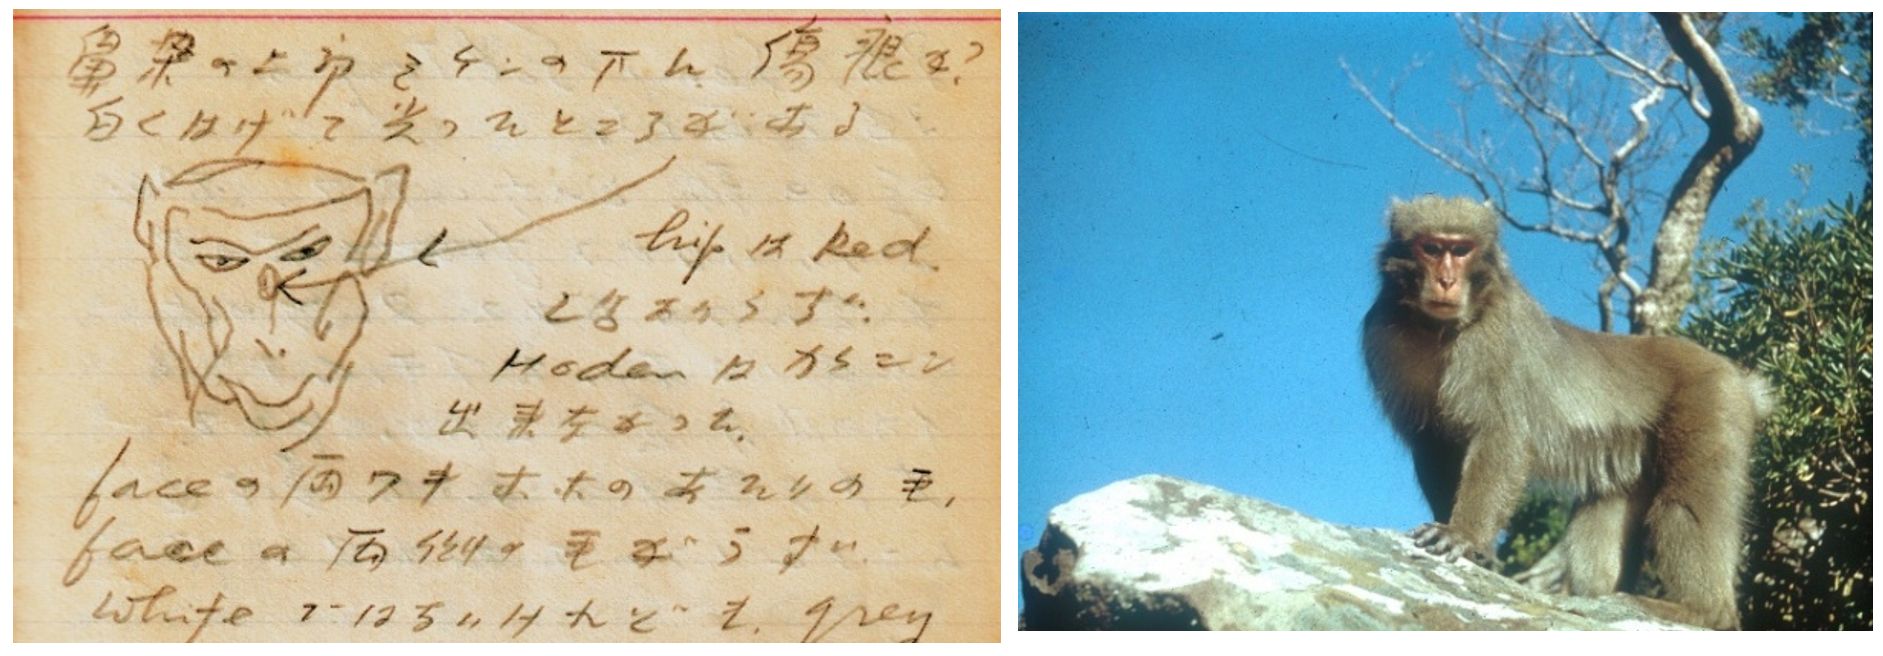 鼻梁の上部ミケンの下に傷痕か?
白くはげて光ったところがある
hip は Red.
とはおからずい.
Hoden は かくニン
出来なかった.
faceの両ワキ ホホのあたりの毛,
faceの両側の毛がうすい.
White ではないけれども, grey